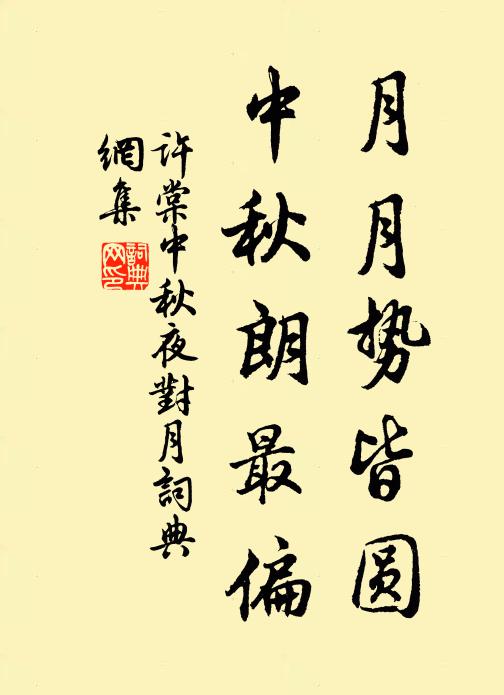 月月势皆圆
中秋朗最偏
许棠中秋夜對月詞典
網集
詞典网印